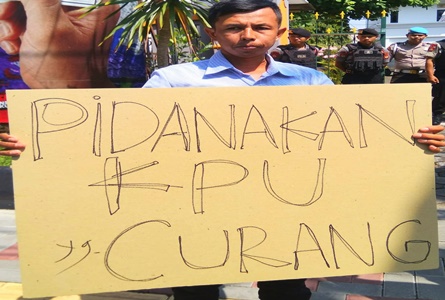 PIDANAKAN
KPU
yg. CURANG